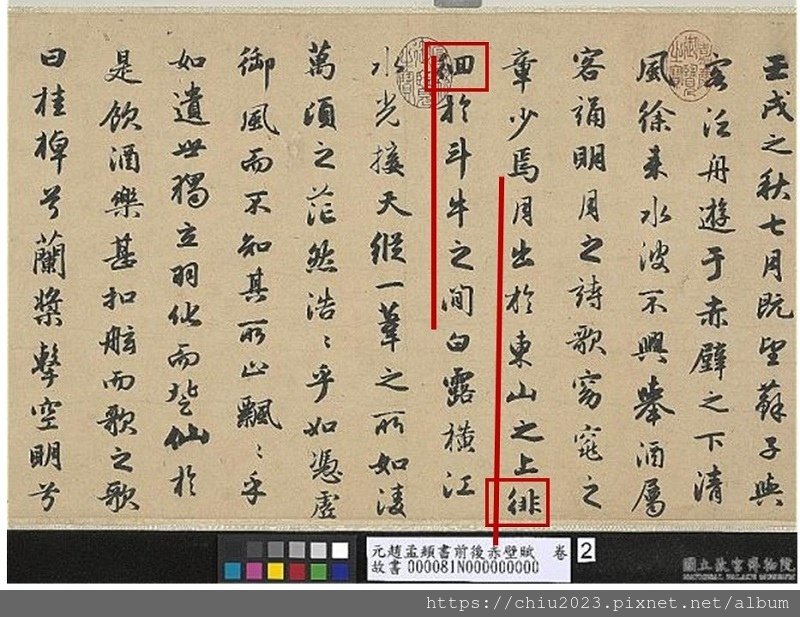 壬戌之秋七月既望蘇子與
客泛舟遊于赤壁之下清
風徐來水波不興舉酒屬
客誦明月之詩歌窈窕之
章少焉月出於東山之上徘
徊於斗牛之間白露橫江
水光接天縱一葦之所如淩
萬頃之茫然浩〻乎如憑虛
御風而不知其所止飄〻乎
如遺世獨立羽化而登仙於
是飲酒樂甚扣舷而歌之歌
曰桂棹兮蘭槳擊空明兮
元趙孟頫書前後赤壁賦 卷 2
故書 000081N000000000
國立故宮博物院
NATIONAL PALACE MUSEUM
https://chiu2023.pixnet.net/album